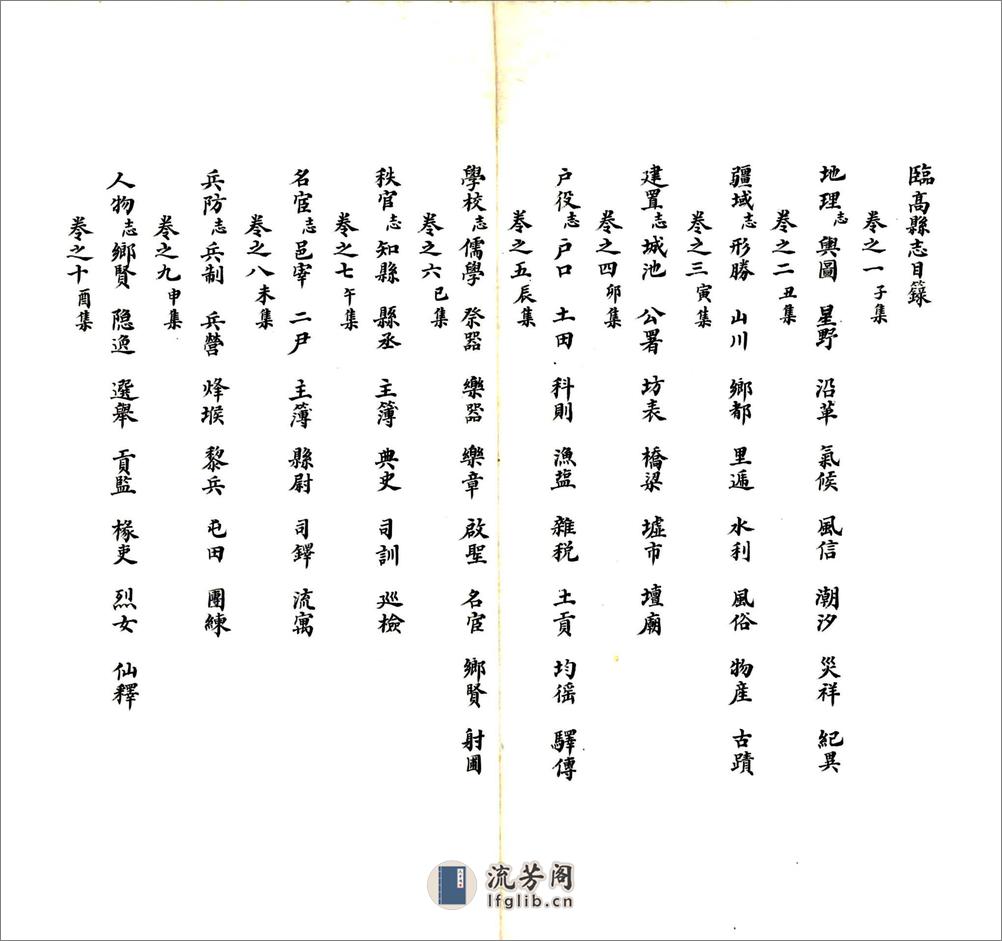 臨高縣志目錄
卷之一子集
地理志 輿圖 星野 沿革 氣候 風信 潮汐 災祥 紀異
卷之二丑集
疆域志 形勝 山川 鄉都 里逓 水利 風俗 物産 古蹟
卷之三寅集
建置志 城池 公署 坊表 橋梁 墟市 壇廟
卷之四卯集
户役志 户口 土田 科則 漁盐 雜税 土貢 均徭 驛傳
卷之五辰集
學校志 儒學 祭器 樂器 樂章 啟聖 名宦 鄉賢 射圃
卷之六巳集
秩官志 知縣 縣丞 主簿 典史 司訓 巡檢
卷之七午集
名宦志 邑宰 二尹 主簿 縣尉 司鐸 流寓
卷之八未集
兵防志 兵制 兵營 烽堠 黎兵 屯田 團練
卷之九申集
人物志 鄉賢 隐逸 選舉 貢監 椽吏 烈女 仙釋
卷之十酉集
流芳阁
lfglib.cn